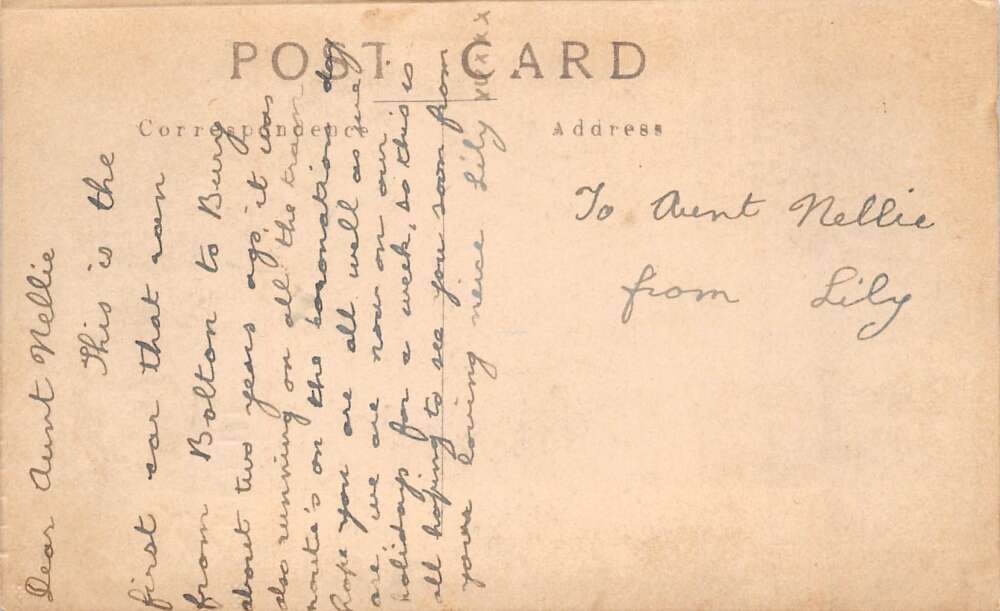 POST CARD
Correspondence
Address
Dear Aunt Nellie
This is the
first car that ran
from Bolton to Bury
about two years ago, it was
also running on all the tram
route's on the coronation day
hope you are all well as we
are we are now on our
holidays for a week, so this is
all hoping to see you soon from
your loving neice Lily xxxxx
To Aunt Nellie
from Lily